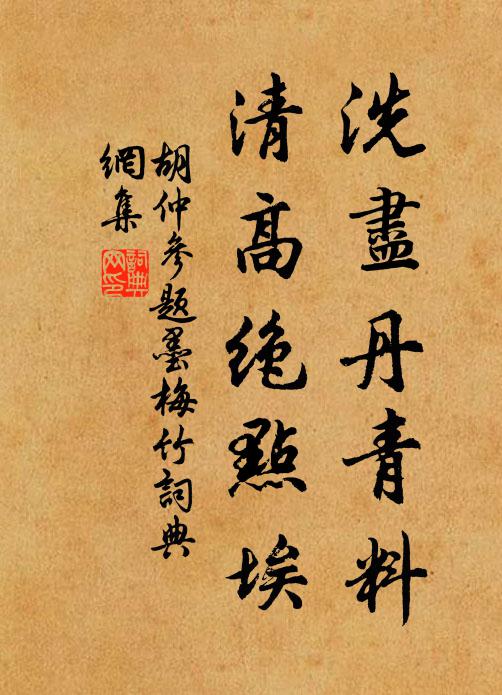 洗盡丹青料
清高绝點埃
胡仲參題墨梅竹詞典
網集
詞典
网印